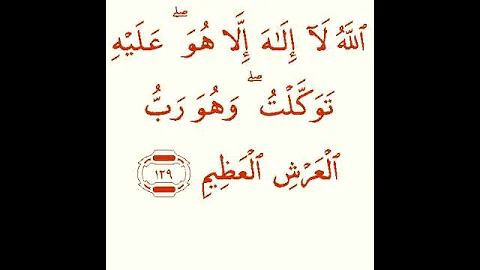 ٱللَّهُ لَآ إِلَٰهَ إِلَّا هُوَ ۖ عَلَيْهِ
تَوَكَّلْتُ ۖ وَهُوَ رَبُّ
ٱلْعَرْشِ ٱلْعَظِيمِ ١٢٩